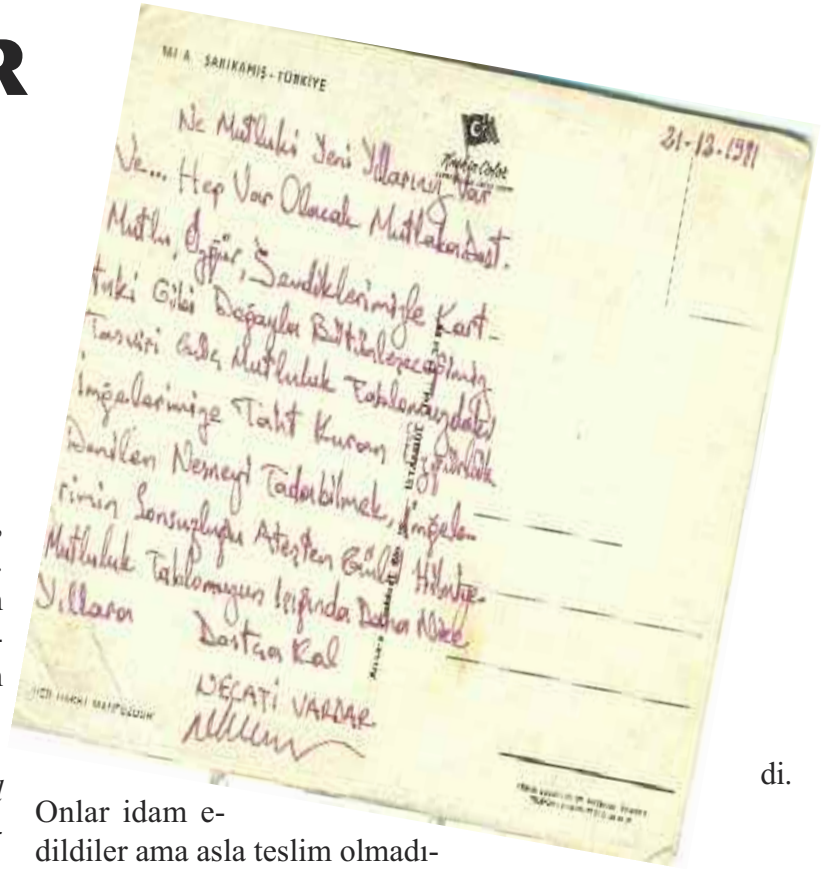 R
SARIKAMIŞ - TÜRKİYE
21-12-1981
Ne Mutluki Yeni Yıllarınız Var
Ve... Hep Var Olacak Mutlaka Dost.
Mutlu, Özgür, Sevdiklerimizle Kart-
taki Gibi Doğayla Bütünleşeceğimiz
Tasviri Mutluluk Tablomuzdaki
İmgelerimize Taht Kuran Özgürlük
Denilen Nesneyi Tadabilmek, İmgele-
rimin Sonsuzluğu Ateşten Gülü
Mutluluk Tablomuzun Işığında Daha Nice
Yıllara
Dostça Kal
NECATİ VARDAR
HER HAKKI MAHFUZDUR
di.
Onlar idam e-
dildiler ama asla teslim olmadı-